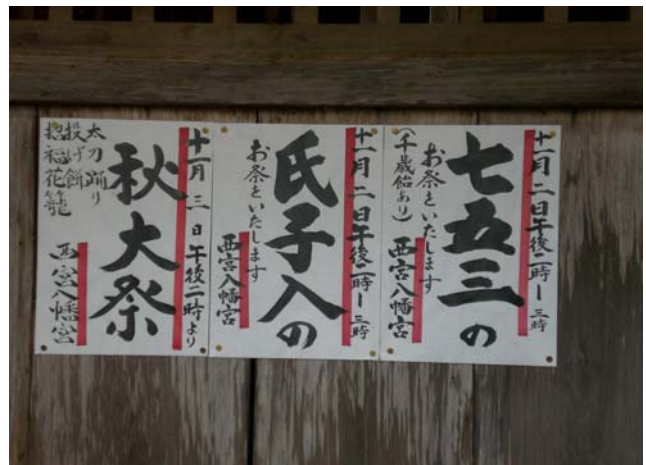 十一月二日午後二時ー三時
七五三の
お祭をいたします
(千歳飴あり)
西宮八幡宮
十一月二日午後二時ー三時
氏子入の
お祭をいたします
西宮八幡宮
十一月三日午後二時より
秋大祭
太刀踊り
投げ餅
招福花籠
西宮八幡宮